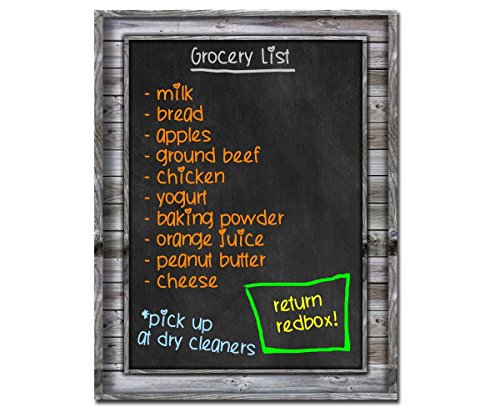 Grocery List
- milk
- bread
- apples
- ground beef
- chicken
- yogurt
- baking powder
- orange juice
- peanut butter
- cheese
*pick up
at dry cleaners
return
redbox!